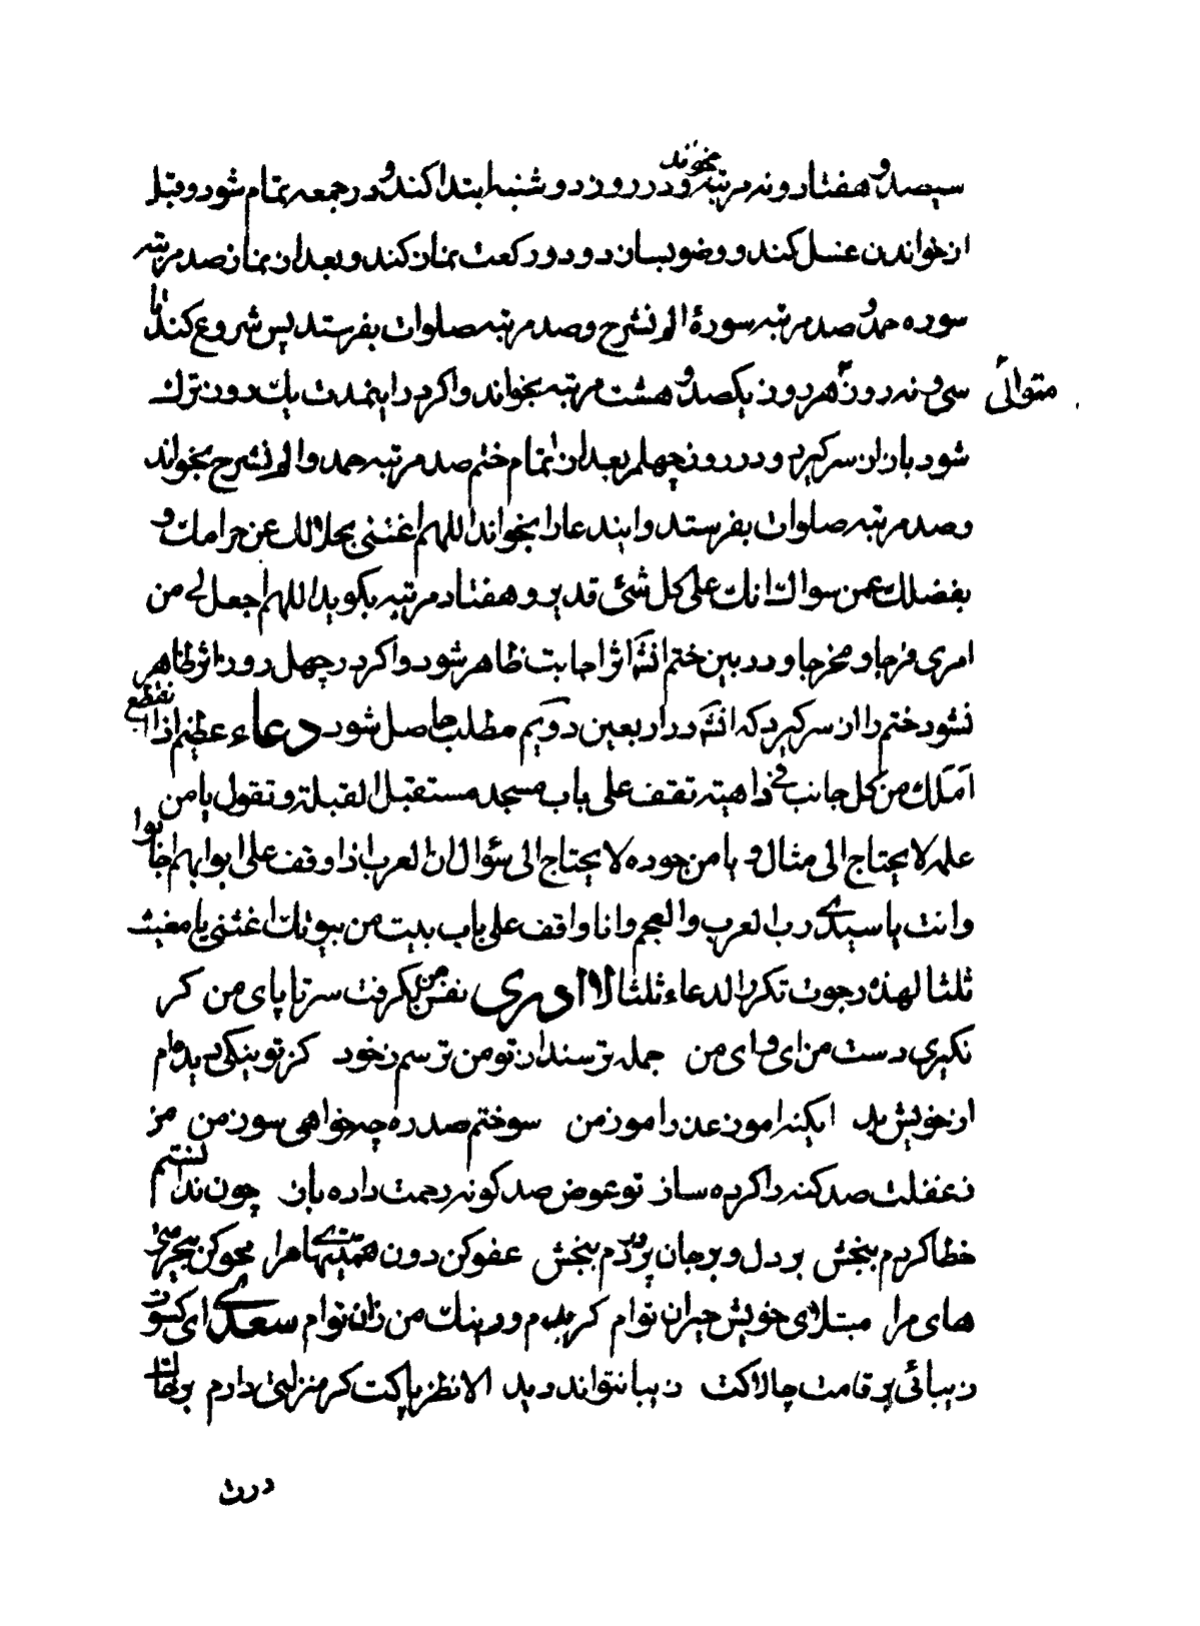 سیصد و هفتاد و نه مرتبه بخواند و در روز دوشنبه ابتدا کند و در جمعه تمام شود و قبل
از خواندن غسل کند و وضو بسازد و دو رکعت نماز کند و بعد از نماز صد مرتبه
سوره حمد و صد مرتبه سورهٔ الم نشرح و صد مرتبه صلوات بفرستد پس شروع کند تا
سی و نه روز متوالی هر روز یکصد و هشت مرتبه بخواند و اکر در اینمدت یک روز ترک
شود باز از سر کیرد و در روز چهلم بعد از اتمام ختم صد مرتبه حمد و الم نشرح بخواند
و صد مرتبه صلوات بفرستد و ایندعا را بخواند اللهم اغننی بحلالک عن حرامک و
بفضلک عمن سواک انک علی کل شئ قدیر و هفتاد مرتبه بکوید اللهم اجعل لی من
امری فرجا و مخرجا و در بین ختم انشآ اثر اجابت ظاهر شود و اکر در چهل روز اثر ظاهر
نشود ختم را از سر کیرد که انشآ در اربعین دویم مطلب حاصل شود دعاء عظیم اذا انقطع
املک من کل جانب فی داهیته تقف علی باب مسجد مستقبل القبلة و تقول یا من
علمه لا یحتاج الی مثال و یا من جوده لا یحتاج الی سؤال ان العرب اذا وقف علی ابوابهم خابوا
وانت یا سیدی رب العرب والعجم وانا واقف علی باب بیت من بیوتک اغثنی یا مغیث
ثلثا لهذه رجوت تکرار الدعاء ثلثا لا ادری نفس من بکرفت سر تا پای من کر
نکیری دست من ای وای من جمله ترسند از تو من ترسم ز خود کز تو نیکی دیده‌ام
از خویش بد ایکنه آموز عذر آموز من سوختم صد ره چه خواهی سوز من من
ز غفلت صد کنه را کرده ساز تو عوض صد کونه رحمت داده باز چون ندانستم
خطا کردم ببخش بر دل و بر جان پر دردم ببخش عفو کن دون همتیهای مرا محو کن بیحرمتی
های مرا مبتلای خویش حیران توام کر بدم ور نیک من زان توام سعدی ای کسوت
زیبائی بر قامت چالاکت زیبا نتواند دید الا نظر پاکت کر منزلتی دارم بر خاک
درت